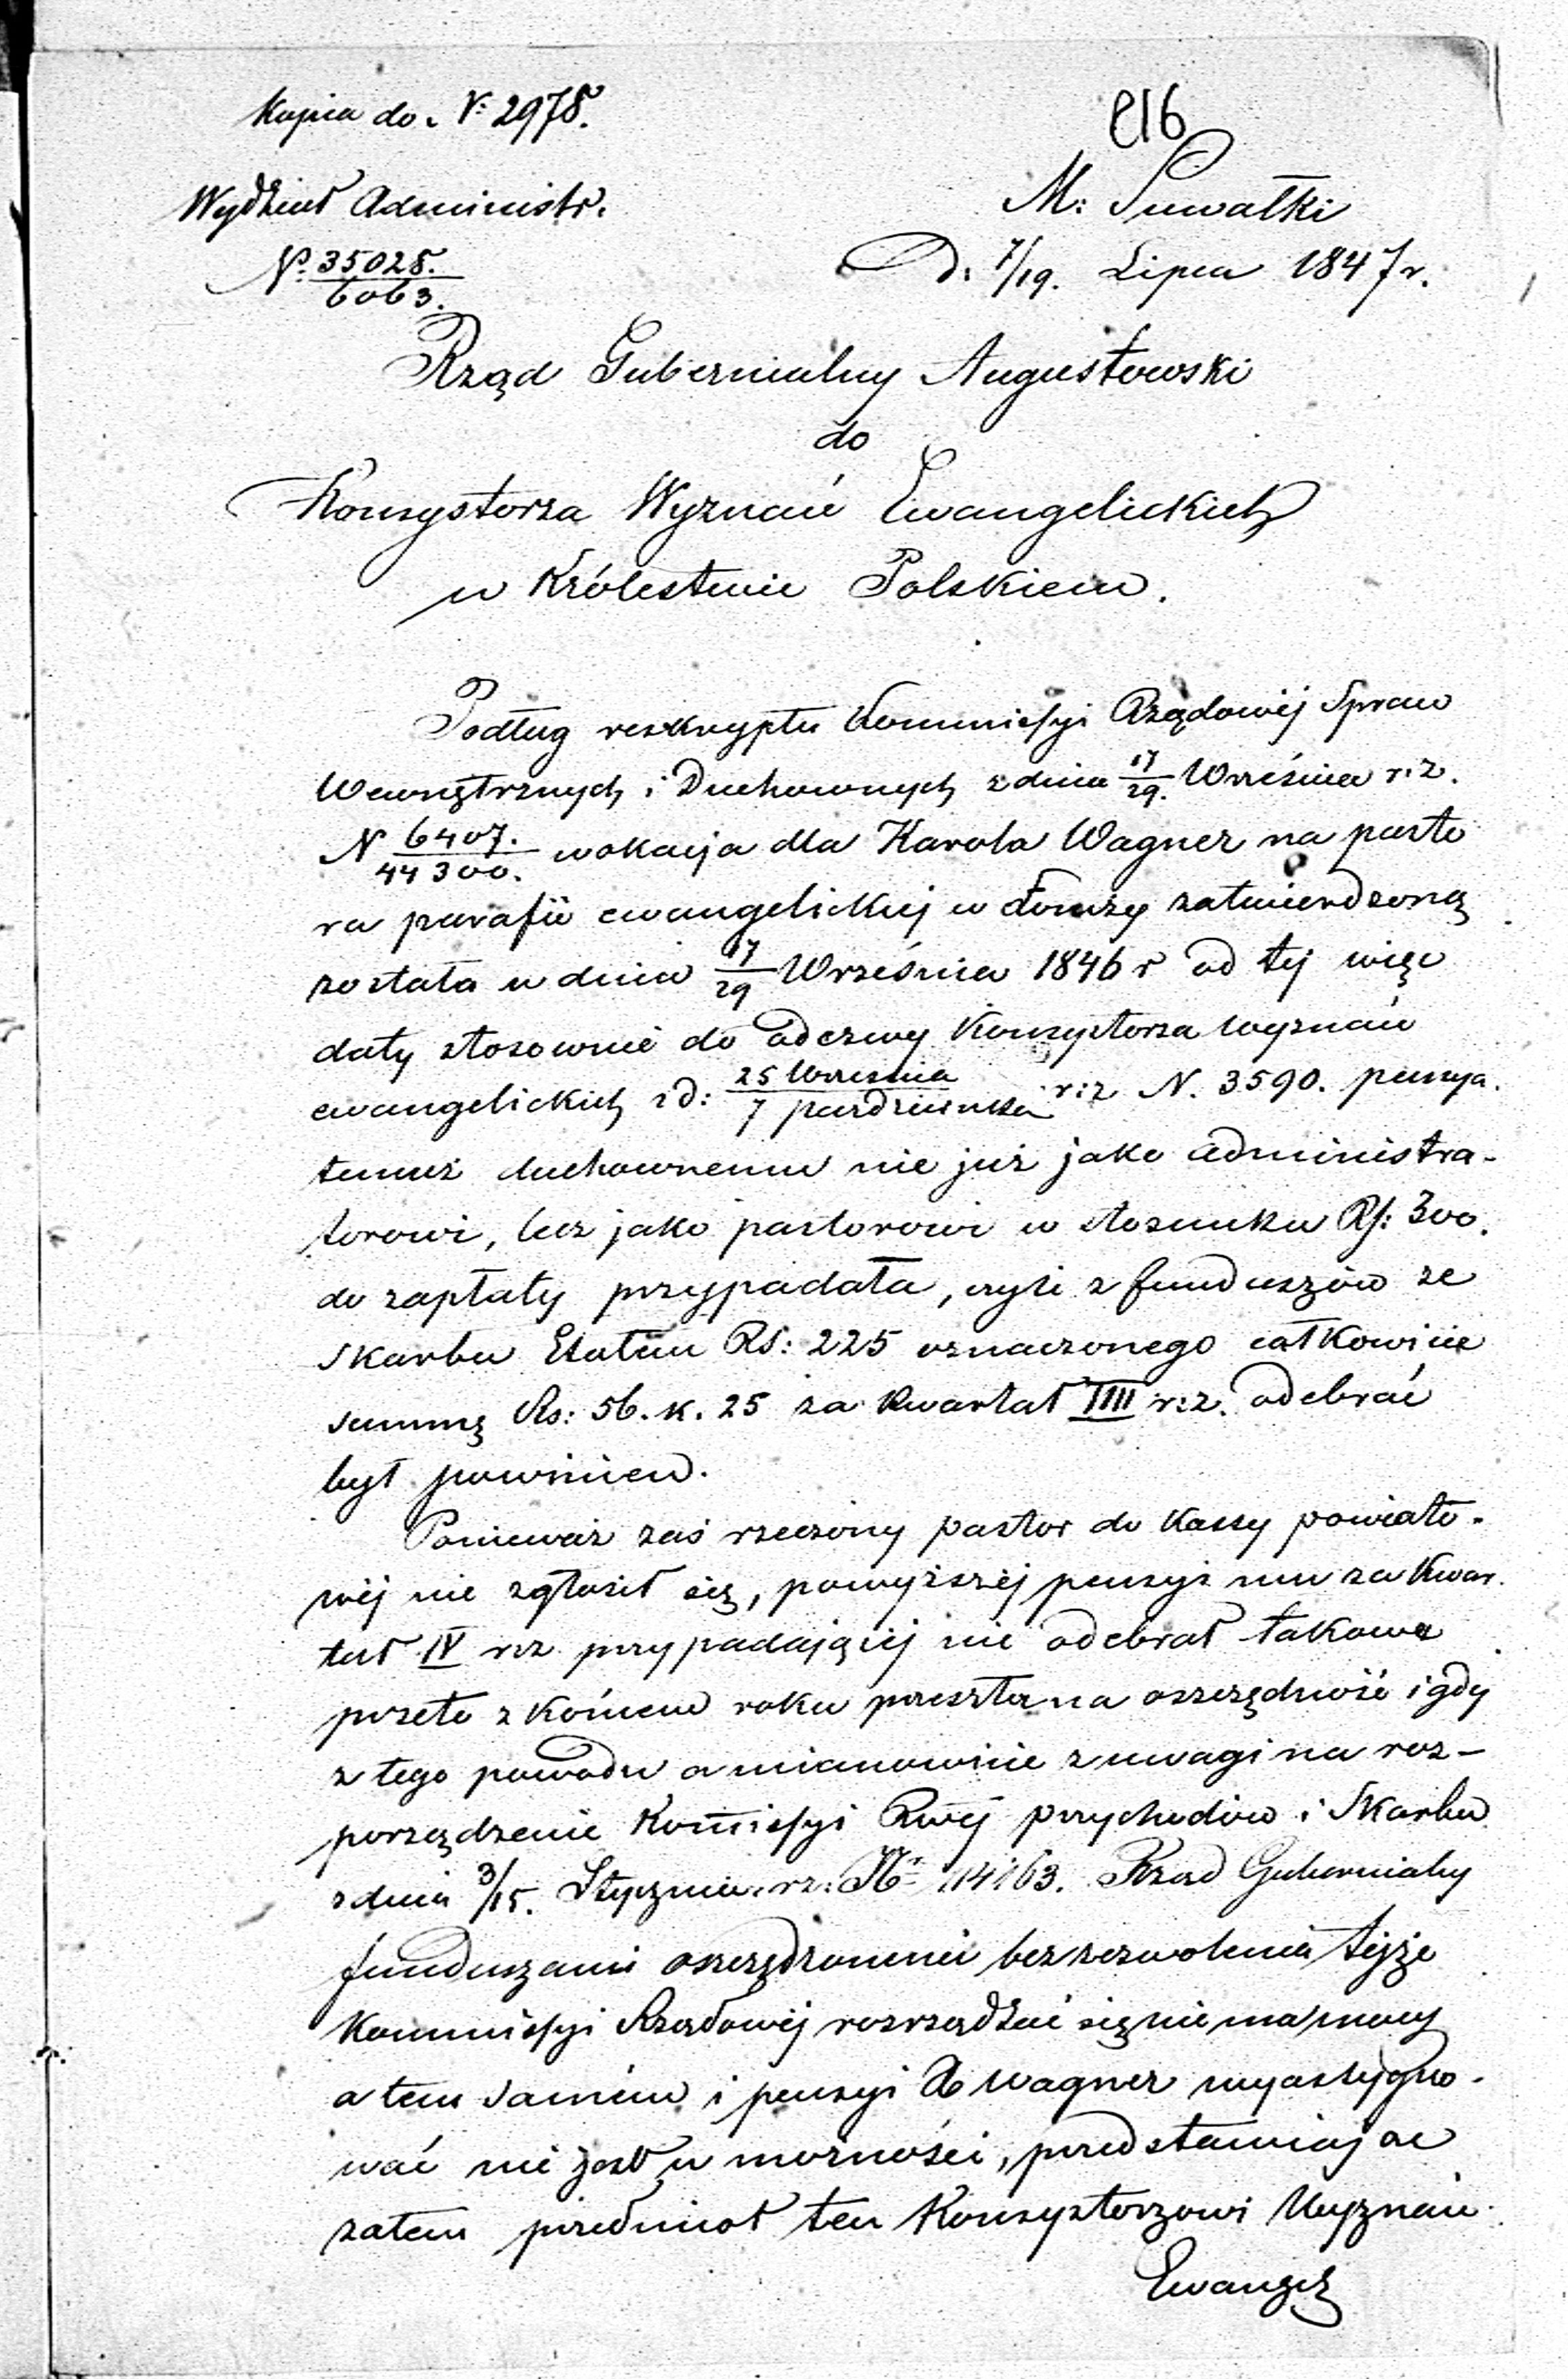 Kopia do N: 2978.
816
Wydział Administr.
M: Suwałki
N. 35028./6063.
D: 7/19. Lipca 1847 r.
Rząd Gubernialny Augustowski
do
Konsystorza Wyznań Ewangelickich
w Królestwie Polskiem.
Podług reskryptu Kommissyi Rządowéj Spraw
Wewnętrznych i Duchownych z dnia 17/29. Września r. z.
N 6407./44300. wokacja dla Karola Wagner na pasto
ra parafii ewangelickiej w Łomży zatwierdzoną
została w dniu 17/29 Września 1846 r od tej więc
daty stosownie do odezwy Konsystorza wyznań
ewangelickich z d: 25 Września/7 października r: z N. 3590. pensya
temuż duchownemu nie już jako administra-
torowi, lecz jako pastorowi w stosunku Rs: 300.
do zapłaty przypadała, czyli z funduszów ze
Skarbu Etatem Rs: 225 oznaczonego całkowicie
summę Rs: 56. k. 25 za kwartał IIII r: z. odebrać
był powinien.
Ponieważ zaś rzeczony pastor do Kassy powiato-
wéj nie zgłosił się, powyższéj pensyi mu za kwar
tał IV rz przypadającéj nie odebrał takowa
przeto z końcem roku przeszła na oszczędność i gdy
z tego powodu a mianowicie z uwagi na roz-
porządzenie Komissyi Rwéj przychodów i Skarbu
z dnia 3/15. Stycznia rz: No 114163. Rząd Gubernialny
funduszami oszczędzonemi bez zezwolenia tejże
Kommissyi Rządowéj rozrządzać się nie ma mocy
a tem samém i pensyi X Wagner wyasygno-
wać nie jest w możności, przedstawiając
zatem przedmiot ten Konsystorzowi Wyznań
Ewangel